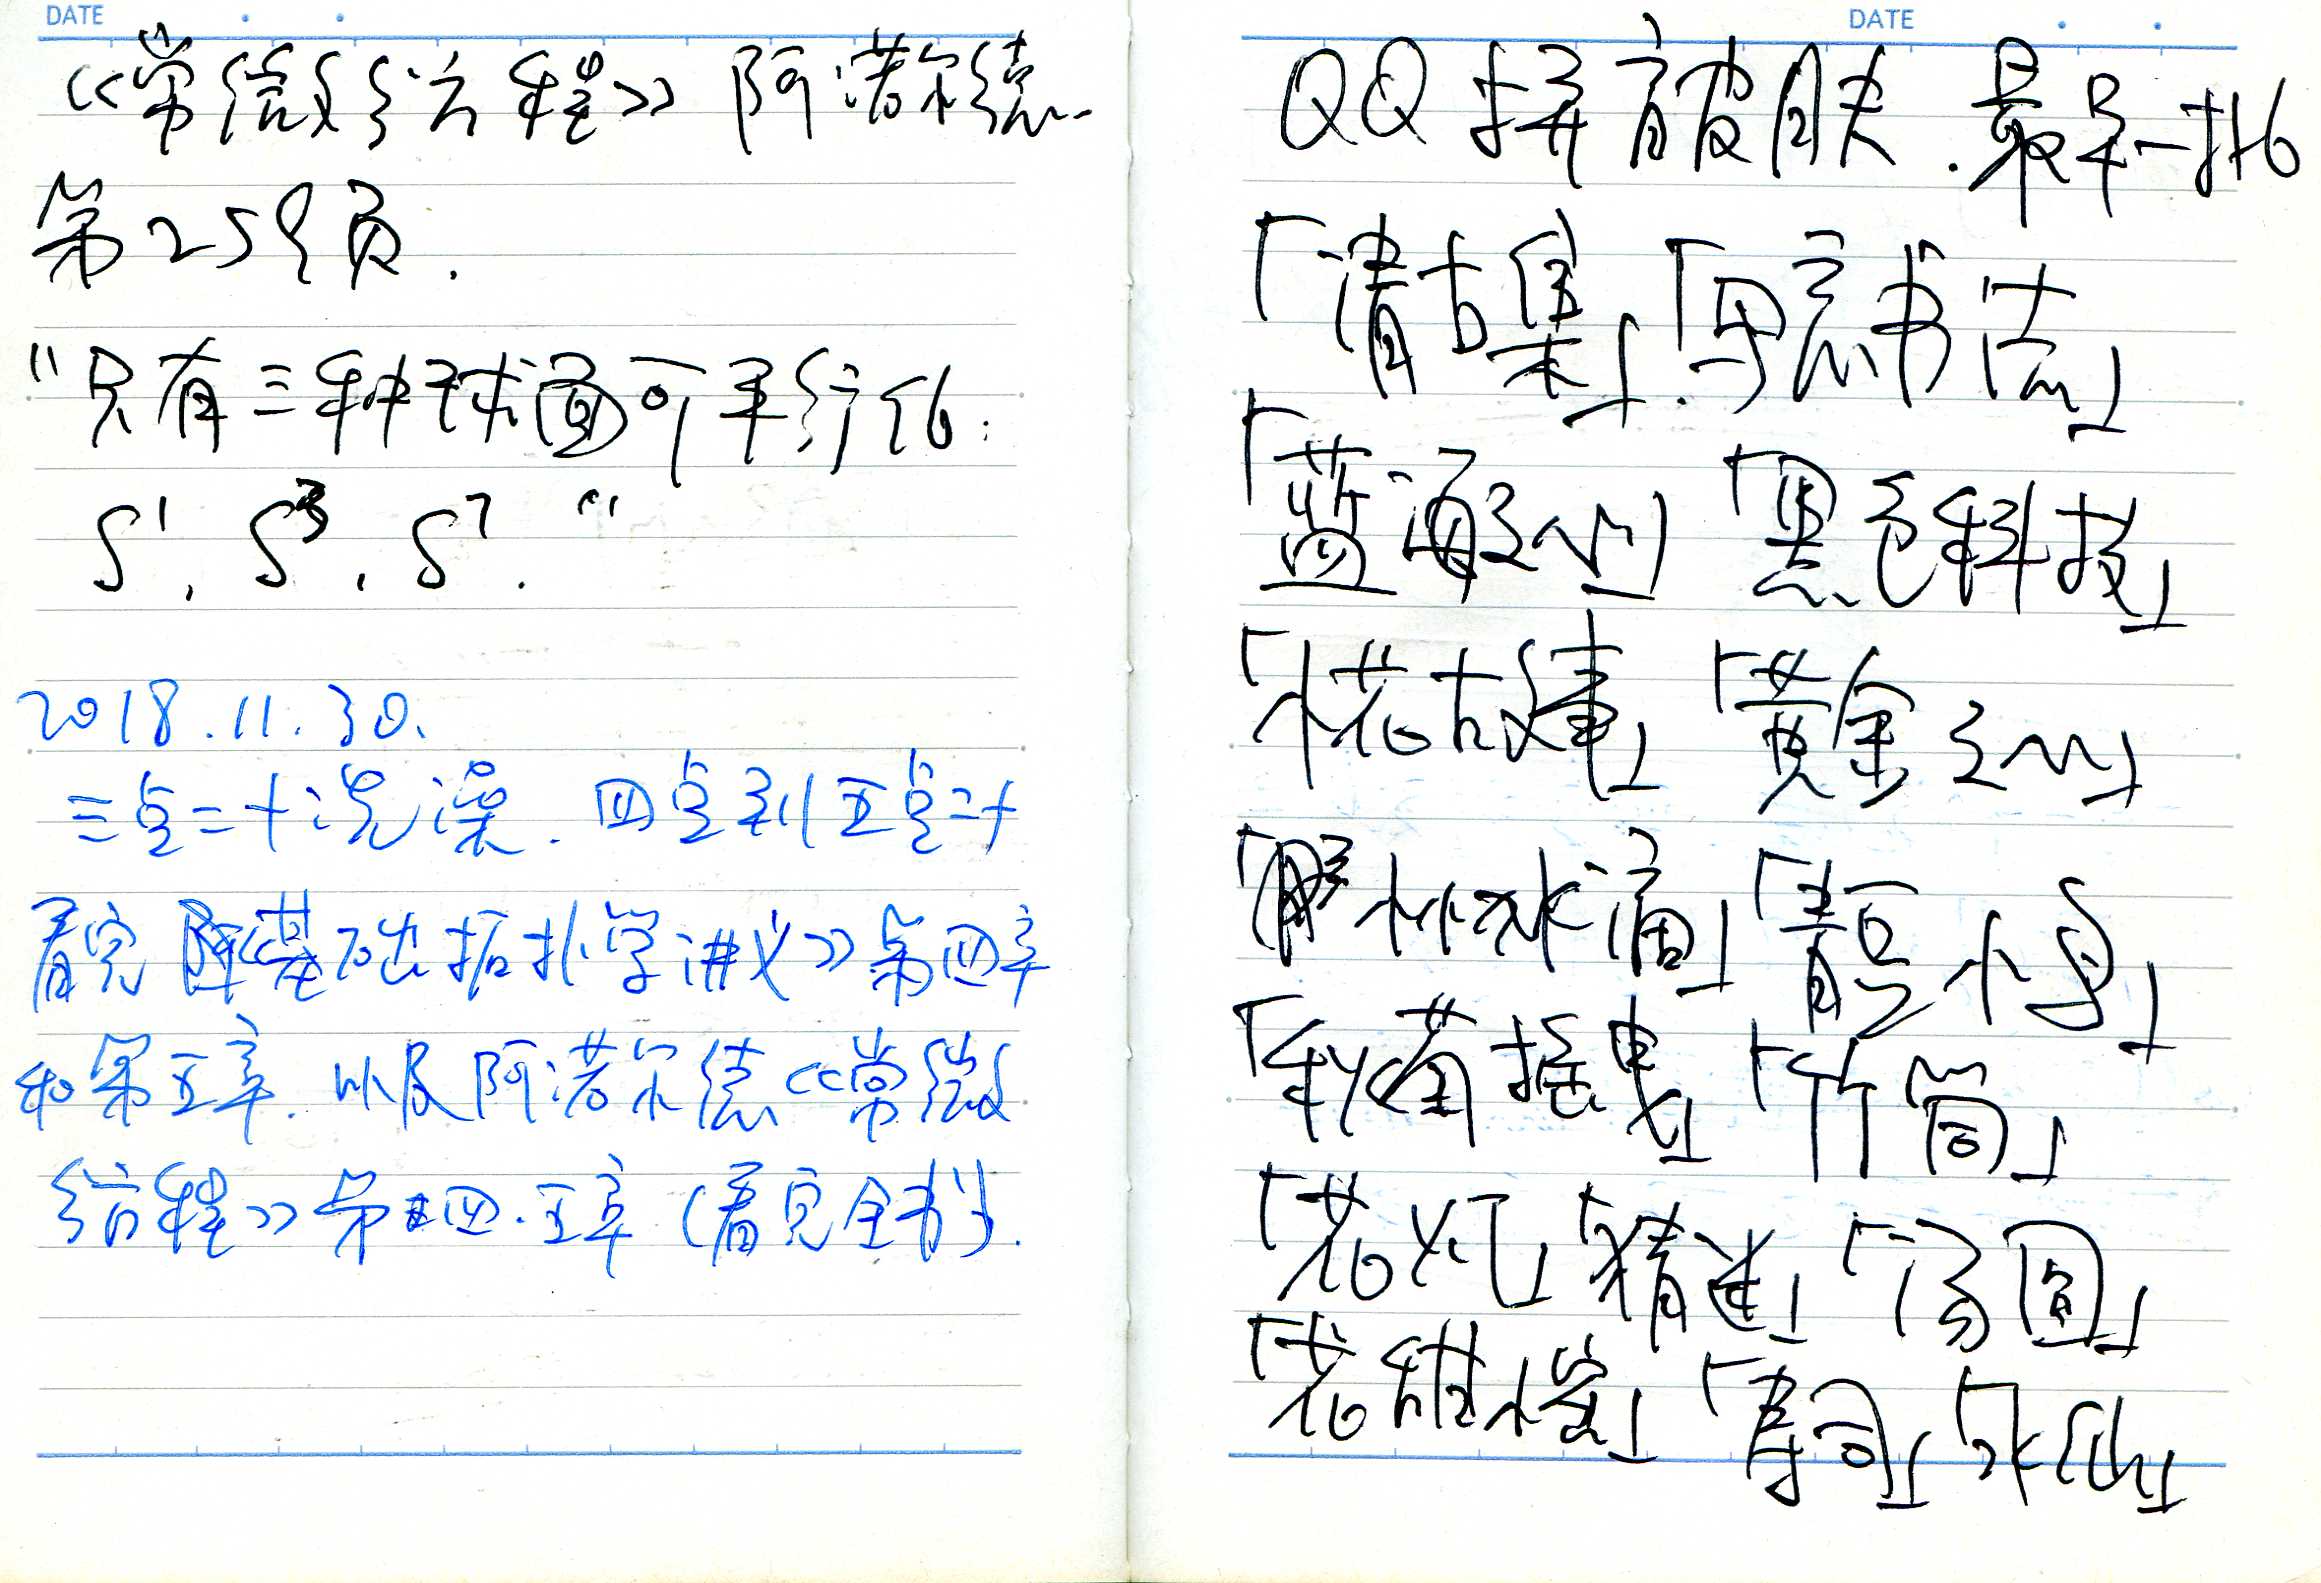 DATE
《常微分方程》阿诺尔德
第259页.
“只有三种球面可平行化:
S¹, S³, S⁷.”
2018.11.30.
三点二十洗澡.四点到五点二十
看完《基础拓扑学讲义》第四章
和第五章.以及阿诺尔德《常微
分方程》第四.五章(看完全书).
DATE
QQ拼音皮肤.最早一批
「清古集」.「写意书法」
「蓝海之心」「黑色科技」
「木花古建」「黄金之心」
「树水滴」「小鸟」
「秋菊摇曳」「竹简」
「花火」「精选」「汤圆」
「花甜蜜」「寿司」「水仙」